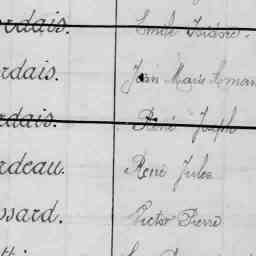 rdais. Emile Isidore.
rdais. Jean Marie Aman
rdais. René Joseph
rdeau. René Jules
ssard. Victor Pierre